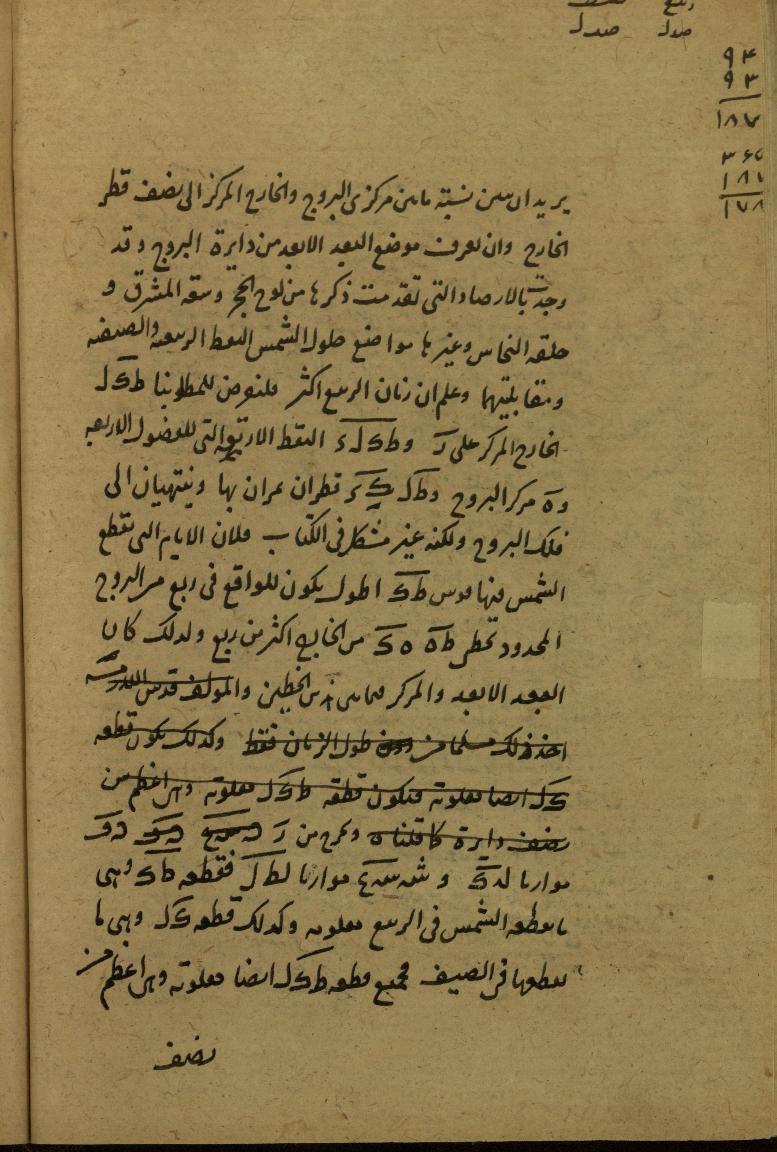 صدل صدل
۹۴
۹۳
۱۸۷
۳۶۵
۱۸۷
۱۷۸
يريد ان يبين نسبة ما بين مركزى البروج والخارج المركز الى نصف قطر
الخارج وان يعرف موضع البعد الابعد من دايرة البروج وقد
وجدت بالارصاد التى تقدمت ذكرها من لوح الحجر و المشرق و
حلقه النحاس وغيرها مواضع حلول الشمس النقط الربيعيه والصيفيه
ومقابلتيهما وعلم ان زمان الربيع اكثر فلنعرض للمطلوبنا ط ك ل
الخارج المركز على ز وط ك ل النقط الاربع التى للفصول الاربعه
وه مركز البروج قطران يمران بها وينتهيان الى
فلك البروج ولكنه غير مشكل فى الكتاب فلان الايام التى تقطع
الشمس فيها قوس ط ك اطول يكون للواقع فى ربع من البروج
المحدود بخطى ط ه ه ك من الخارج اكثر من ربع ولذلك كان
البعد الابعد والمركز فيما بين الخطين والمولف قدس الله
اخذ ذلك مسلما من طول الزمان فقط وكذلك يكون قطعه
ك ل ايضا معلومة فيكون قطعه ط ك ل معلومة وهى اعظم من
نصف دايرة كما قلناه ويخرج من ز
موازيا ل ه ك و موازيا ل ط ل فقطعه ط ك وهى
ما يقطعه الشمس فى الربيع معلومه وكذلك قطعه ك ل وهى ما
يقطعها فى الصيف فجميع قطعه ط ك ل ايضا معلومة وهى اعظم من
نصف